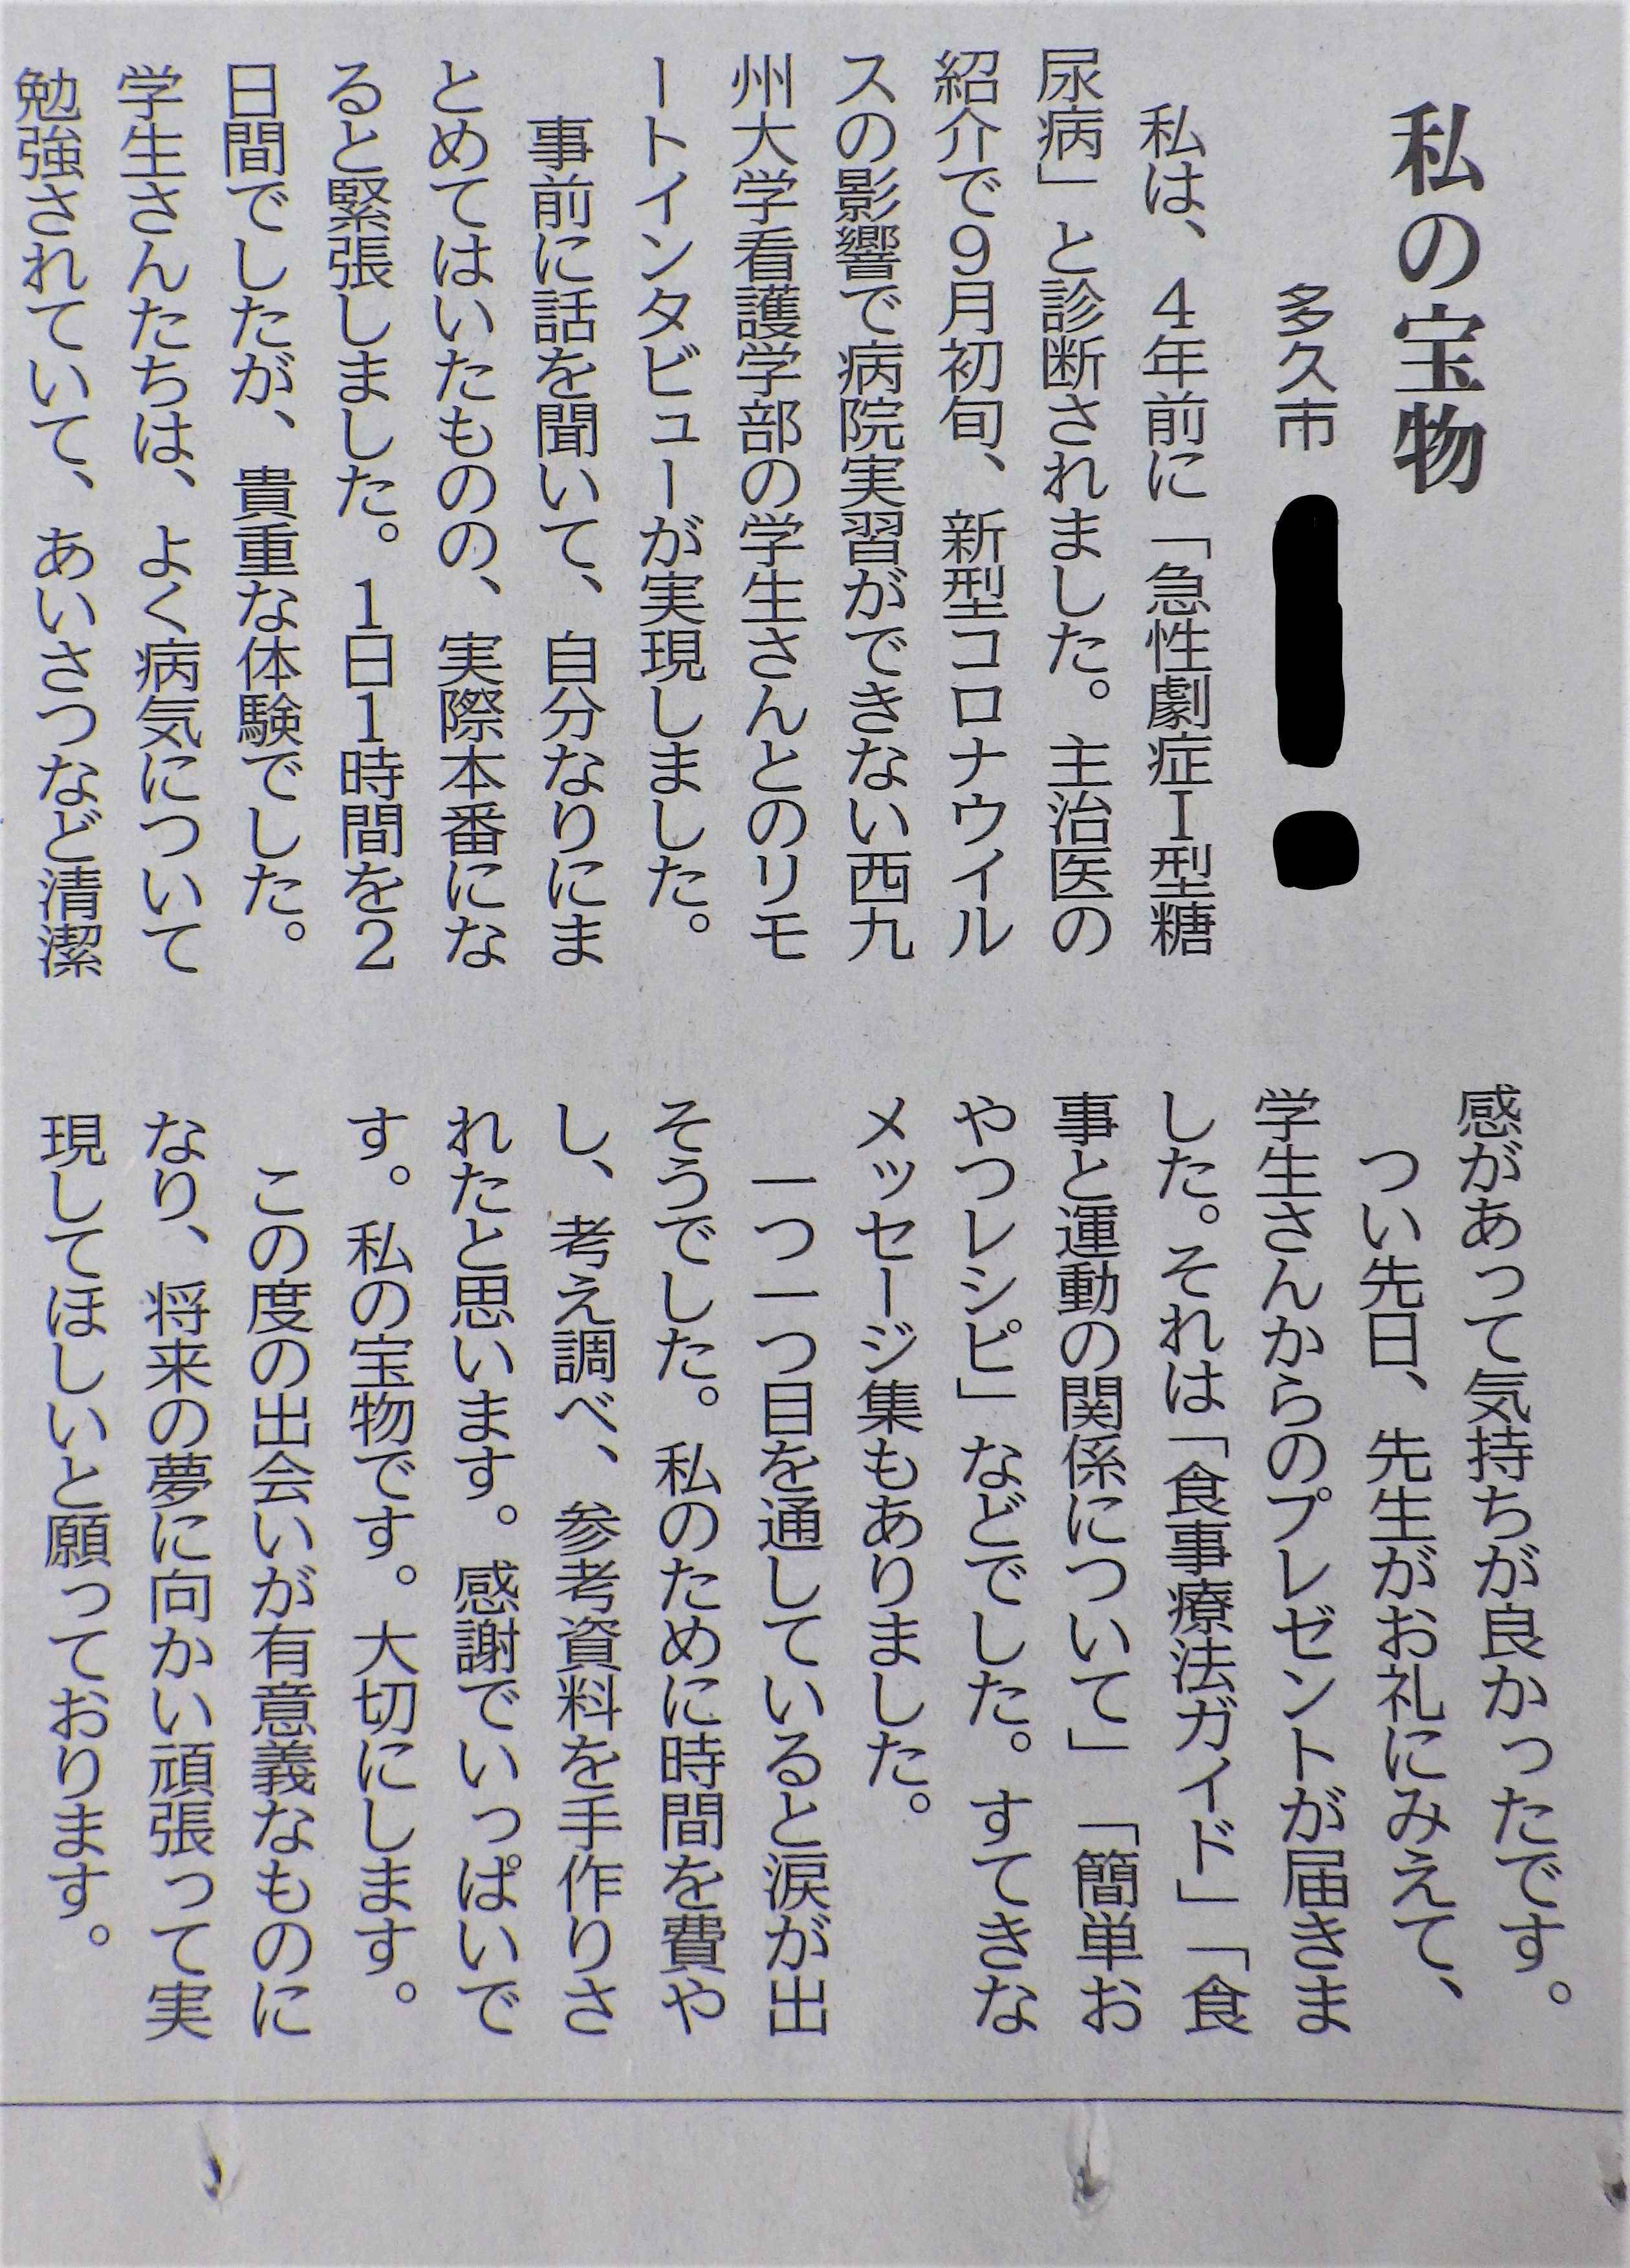 私の宝物
多久市
私は、4年前に「急性劇症Ⅰ型糖
尿病」と診断されました。主治医の
紹介で9月初旬、新型コロナウイル
スの影響で病院実習ができない西九
州大学看護学部の学生さんとのリモ
ートインタビューが実現しました。
事前に話を聞いて、自分なりにま
とめてはいたものの、実際本番にな
ると緊張しました。1日1時間を2
日間でしたが、貴重な体験でした。
学生さんたちは、よく病気について
勉強されていて、あいさつなど清潔
感があって気持ちが良かったです。
つい先日、先生がお礼にみえて、
学生さんからのプレゼントが届きま
した。それは「食事療法ガイド」「食
事と運動の関係について」「簡単お
やつレシピ」などでした。すてきな
メッセージ集もありました。
一つ一つ目を通していると涙が出
そうでした。私のために時間を費や
し、考え調べ、参考資料を手作りさ
れたと思います。感謝でいっぱいで
す。私の宝物です。大切にします。
この度の出会いが有意義なものに
なり、将来の夢に向かい頑張って実
現してほしいと願っております。